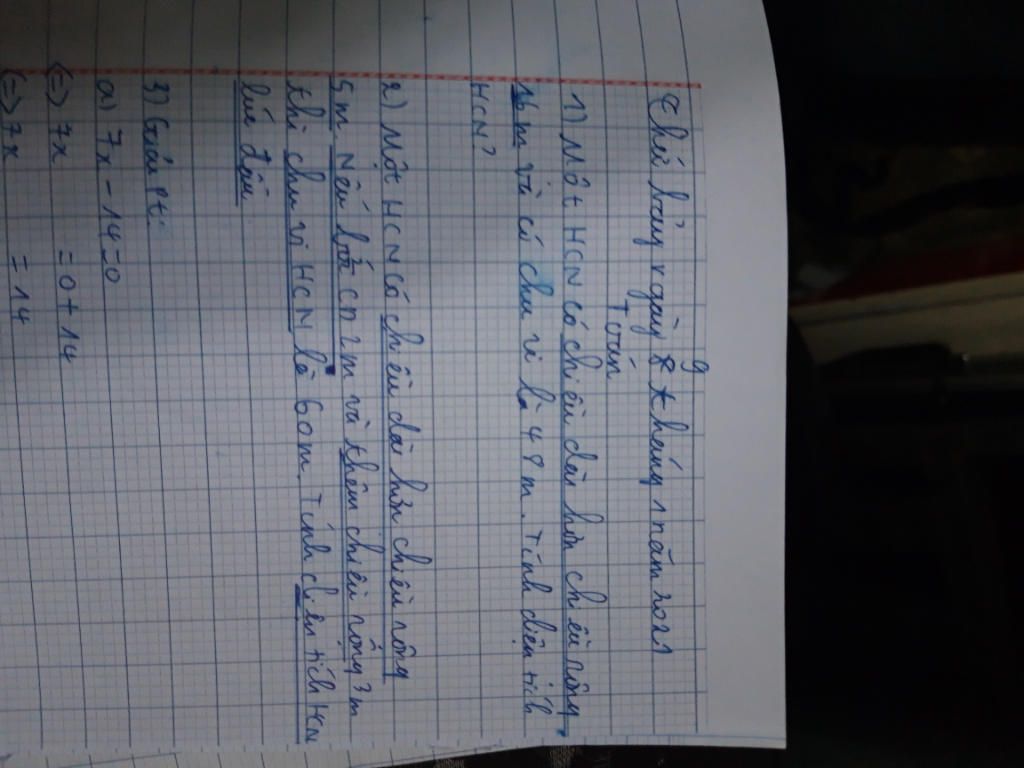 Thứ bảy ngày 9 tháng 1 năm 2021
Toán
1) Một HCN có chiều dài hơn chiều rộng
16m và có chu vi là 48m. Tính diện tích
HCN?
2) Một HCN có chiều dài hơn chiều rộng
5m Nếu bớt CD 2m và thêm chiều rộng 3m
thì chu vi HCN là 60m. Tính diện tích HCN
lúc đầu
3) Giải pt:
a) 7x - 14 = 0
(=) 7x = 0 + 14
(=) 7x = 14